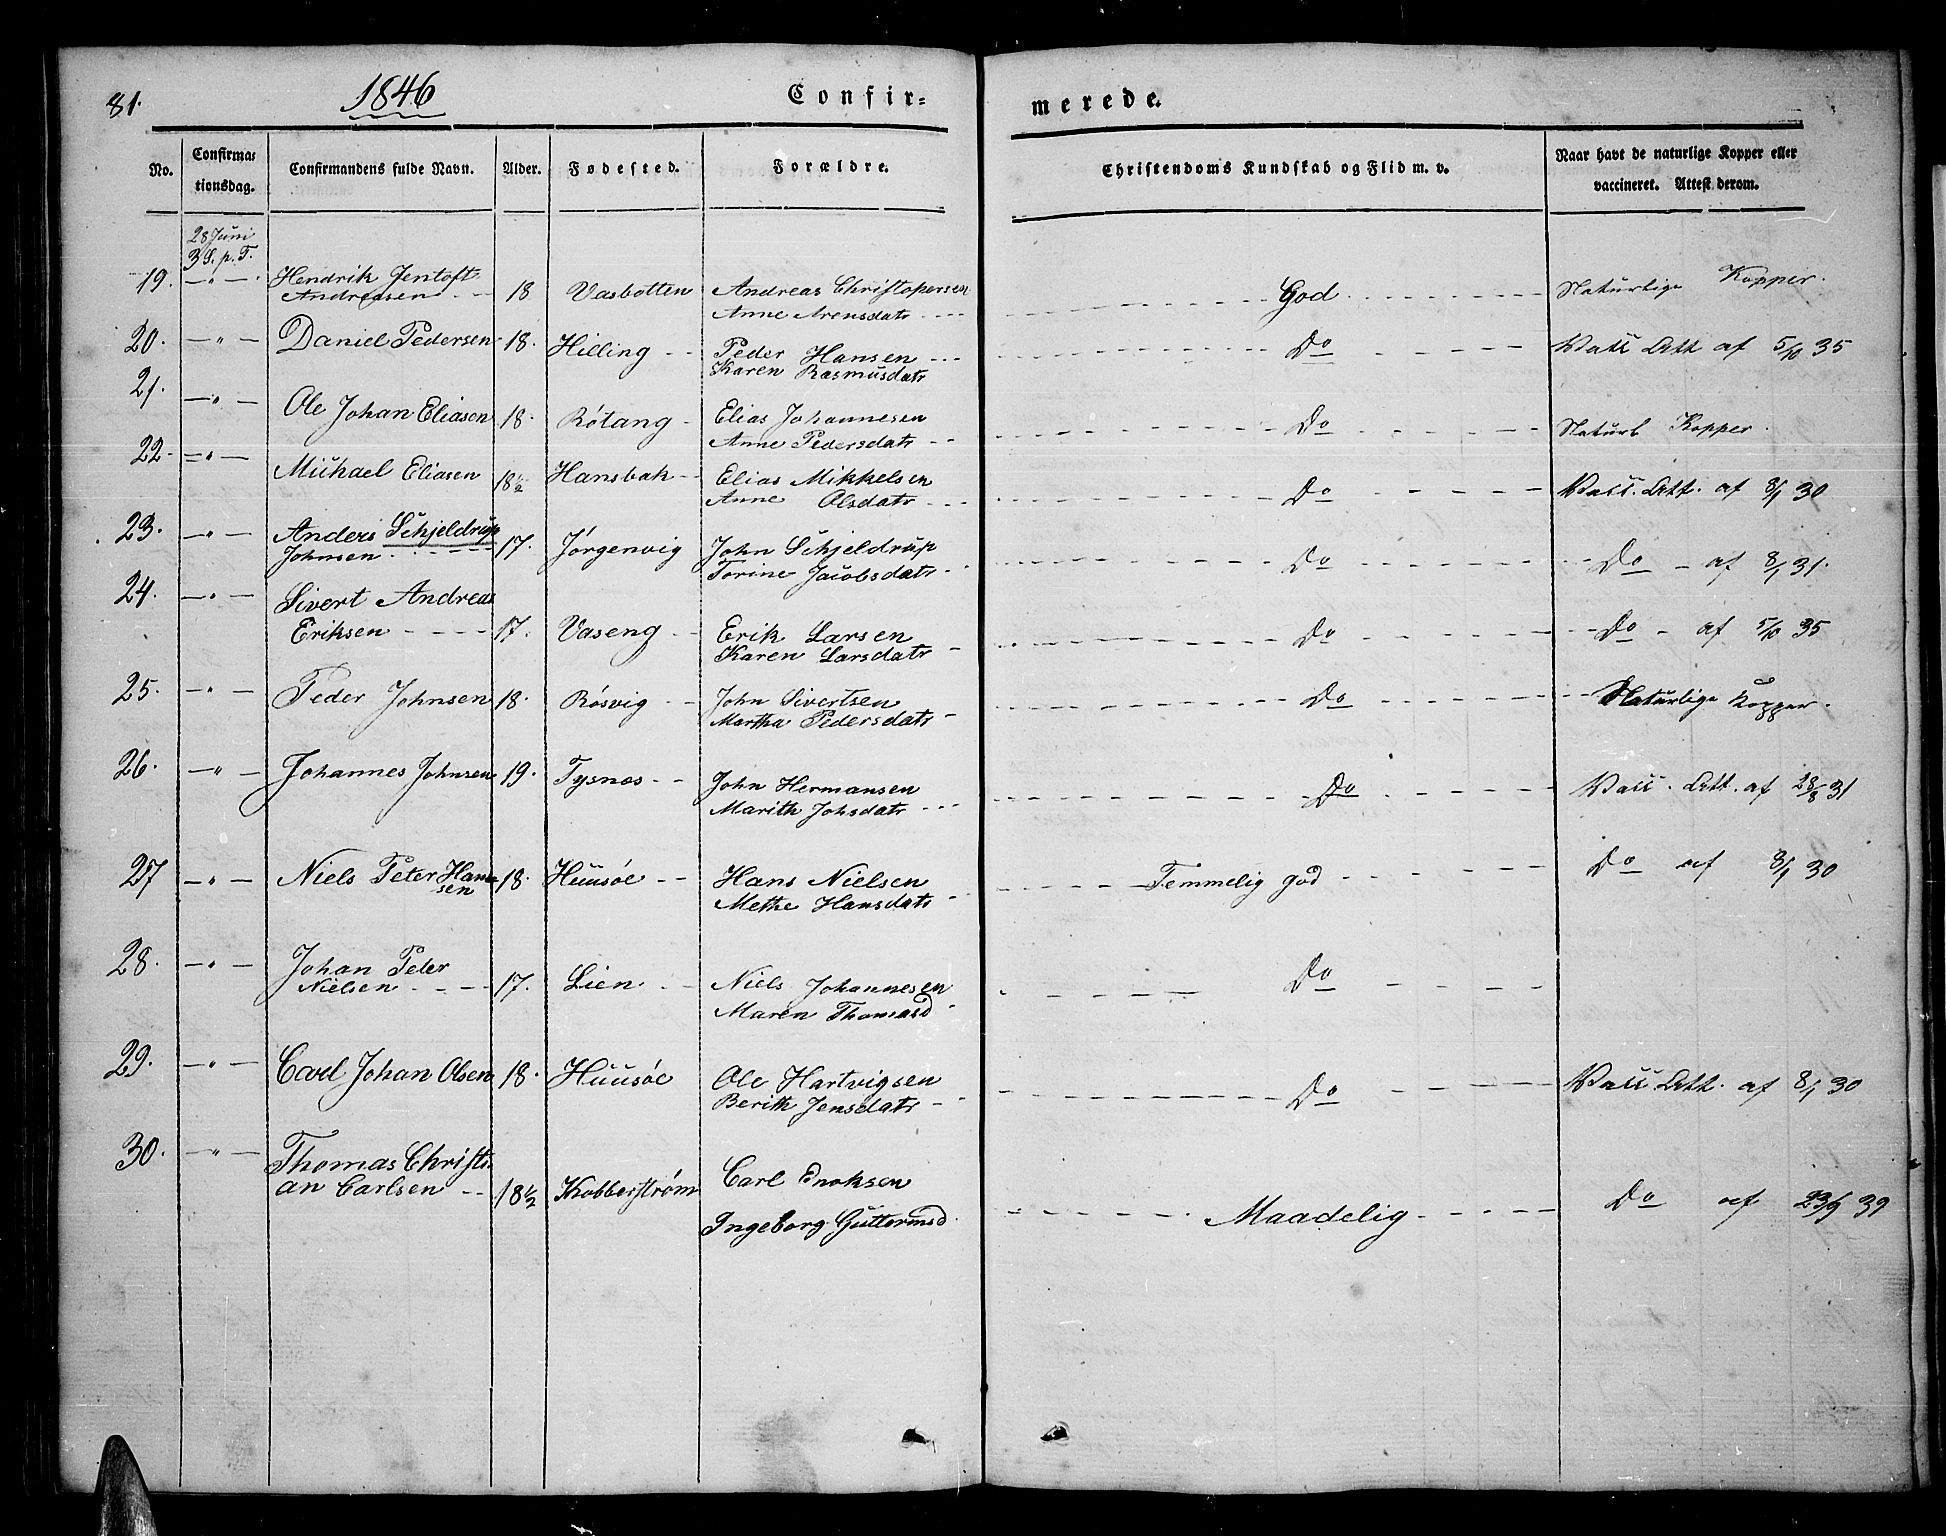 81.
1846
Confir-
merede.
No.
Confirma-
tionsdag.
Confirmandens fulde Navn.
Alder.
Fødested.
Forældre.
Christendoms Kundskab og Flid m. v.
Naar havt de naturlige Kopper eller
vaccineret. Attest derom.
28 Juni
3 S. p. T.
19. — " — Hendrik Jentoft
Andreasen 18 Vasbotten Andreas Christopersen
Anne Arensdatr God Naturlige Kopper.
20. — " — Daniel Pedersen 18. Hilling Peder Hansen
Karen Rasmusdatr Do Vacc Att af 5/10 35
21. — " — Ole Johan Eliasen 18. Røtang Elias Johannesen
Anne Pedersdatr Do Naturl Kopper.
22 — " — Michael Eliasen 18½ Hansbak Elias Mikkelsen
Anne Olsdatr Do Vacc. Att. af 8/1 30
23. — " — Anders Schjeldrup
Johnsen 17. Jørgenvig John Schjeldrup
Torine Jacobsdatr Do Do af 8/1 31.
24. — " — Sivert Andreas
Eriksen 17. Vaseng Erik Larsen
Karen Larsdatr Do Do af 5/10 35
25. — " — Peder Johnsen 18. Røsvig John Sivertsen
Martha Pedersdatr Do Naturlige Kopper.
26. — " — Johannes Johnsen 19. Tysnes John Hermansen
Marith Johsdatr Do Vacc. Att. af 28/8 31
27 — " — Niels Peter Han-
sen 18. Huusøe Hans Nielsen
Methe Hansdatr Temmelig god Do af 8/1 30
28. — " — Johan Peter
Nielsen 17. Lien Niels Johannesen
Maren Thomasd Do
29. — " — Carl Johan Olsen 18. Huusøe Ole Hartvigsen
Berith Jensdatr Do Vacc. Att. af 8/1 30
30. — " — Thomas Christi
an Carlsen 18½ Kobberstrøm Carl Enoksen
Ingeborg Guttormsd. Maadelig Do af 23/9 39